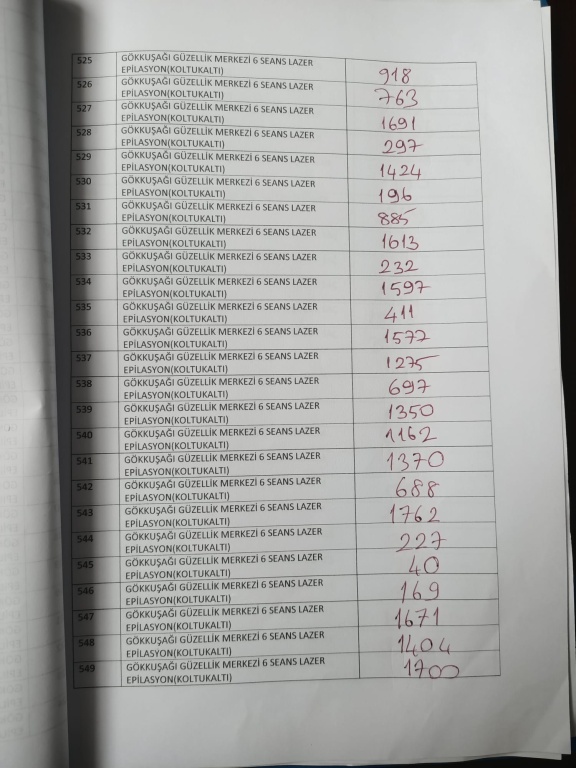 525 GÖKKUŞAĞI GÜZELLİK MERKEZİ 6 SEANS LAZER
EPİLASYON(KOLTUKALTI) 918
526 GÖKKUŞAĞI GÜZELLİK MERKEZİ 6 SEANS LAZER
EPİLASYON(KOLTUKALTI) 763
527 GÖKKUŞAĞI GÜZELLİK MERKEZİ 6 SEANS LAZER
EPİLASYON(KOLTUKALTI) 1691
528 GÖKKUŞAĞI GÜZELLİK MERKEZİ 6 SEANS LAZER
EPİLASYON(KOLTUKALTI) 297
529 GÖKKUŞAĞI GÜZELLİK MERKEZİ 6 SEANS LAZER
EPİLASYON(KOLTUKALTI) 1424
530 GÖKKUŞAĞI GÜZELLİK MERKEZİ 6 SEANS LAZER
EPİLASYON(KOLTUKALTI) 196
531 GÖKKUŞAĞI GÜZELLİK MERKEZİ 6 SEANS LAZER
EPİLASYON(KOLTUKALTI) 885
532 GÖKKUŞAĞI GÜZELLİK MERKEZİ 6 SEANS LAZER
EPİLASYON(KOLTUKALTI) 1613
533 GÖKKUŞAĞI GÜZELLİK MERKEZİ 6 SEANS LAZER
EPİLASYON(KOLTUKALTI) 232
534 GÖKKUŞAĞI GÜZELLİK MERKEZİ 6 SEANS LAZER
EPİLASYON(KOLTUKALTI) 1597
535 GÖKKUŞAĞI GÜZELLİK MERKEZİ 6 SEANS LAZER
EPİLASYON(KOLTUKALTI) 411
536 GÖKKUŞAĞI GÜZELLİK MERKEZİ 6 SEANS LAZER
EPİLASYON(KOLTUKALTI) 1577
537 GÖKKUŞAĞI GÜZELLİK MERKEZİ 6 SEANS LAZER
EPİLASYON(KOLTUKALTI) 1275
538 GÖKKUŞAĞI GÜZELLİK MERKEZİ 6 SEANS LAZER
EPİLASYON(KOLTUKALTI) 697
539 GÖKKUŞAĞI GÜZELLİK MERKEZİ 6 SEANS LAZER
EPİLASYON(KOLTUKALTI) 1350
540 GÖKKUŞAĞI GÜZELLİK MERKEZİ 6 SEANS LAZER
EPİLASYON(KOLTUKALTI) 1162
541 GÖKKUŞAĞI GÜZELLİK MERKEZİ 6 SEANS LAZER
EPİLASYON(KOLTUKALTI) 1370
542 GÖKKUŞAĞI GÜZELLİK MERKEZİ 6 SEANS LAZER
EPİLASYON(KOLTUKALTI) 688
543 GÖKKUŞAĞI GÜZELLİK MERKEZİ 6 SEANS LAZER
EPİLASYON(KOLTUKALTI) 1762
544 GÖKKUŞAĞI GÜZELLİK MERKEZİ 6 SEANS LAZER
EPİLASYON(KOLTUKALTI) 227
545 GÖKKUŞAĞI GÜZELLİK MERKEZİ 6 SEANS LAZER
EPİLASYON(KOLTUKALTI) 40
546 GÖKKUŞAĞI GÜZELLİK MERKEZİ 6 SEANS LAZER
EPİLASYON(KOLTUKALTI) 169
547 GÖKKUŞAĞI GÜZELLİK MERKEZİ 6 SEANS LAZER
EPİLASYON(KOLTUKALTI) 1671
548 GÖKKUŞAĞI GÜZELLİK MERKEZİ 6 SEANS LAZER
EPİLASYON(KOLTUKALTI) 1404
549 GÖKKUŞAĞI GÜZELLİK MERKEZİ 6 SEANS LAZER
EPİLASYON(KOLTUKALTI) 1700